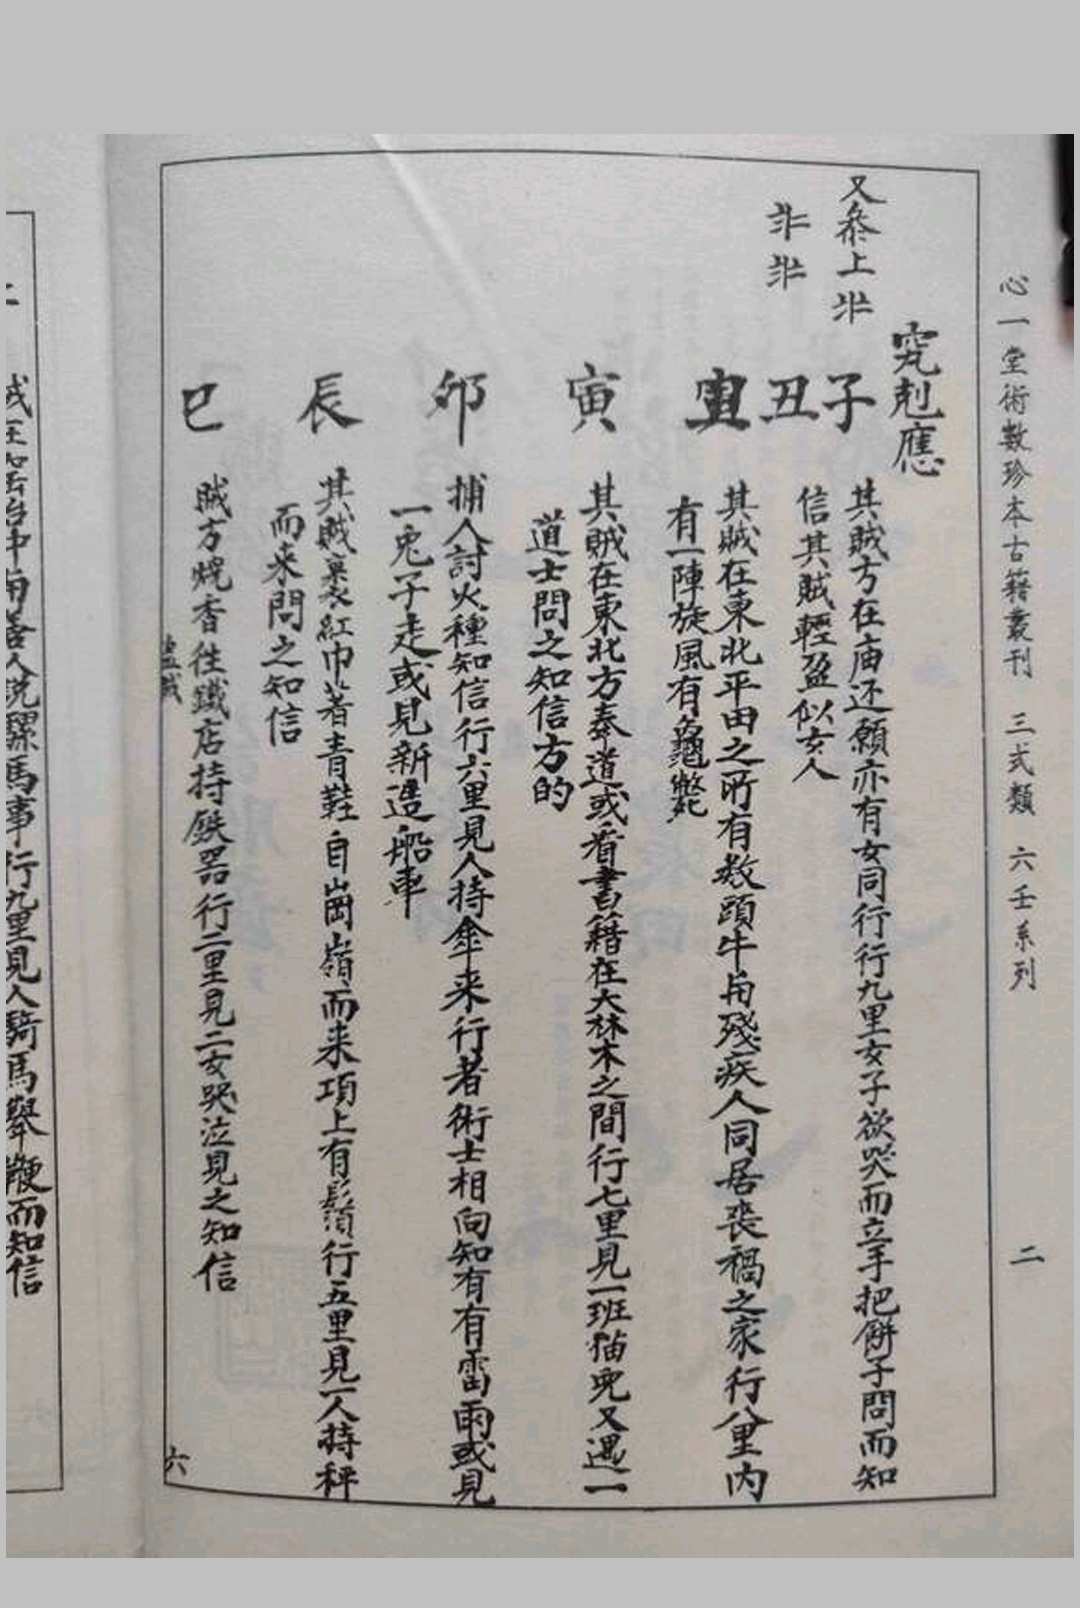 心一堂術數珍本古籍叢刊 三式類 六壬系列 二
究剋應
又叅上
子
其賊方在庙还願亦有女同行行九里女子欲哭而立手把餅子問而知
信其賊輕盈似女人
丑
其賊在東北平田之所有数頭牛用殘疾人同居喪禍之家行八里內
有一陣旋風有龜鱉
寅
其賊在東北方奉道或看書籍在大林木之間行七里見一班猫兒又遇一
道士問之知信方的
卯
捕人討火種知信行六里見人持傘来行者術士相向知有有雷雨或見
一兎子走或見新造船車
辰
其賊裹紅巾著青鞋自崗嶺而来項上有鬚行五里見一人持秤
而来問之知信
巳
賊方燒香往鐵店持鉄器行二里見二女哭泣見之知信
六
人說騾馬事行九里見人騎馬舉鞭而知信